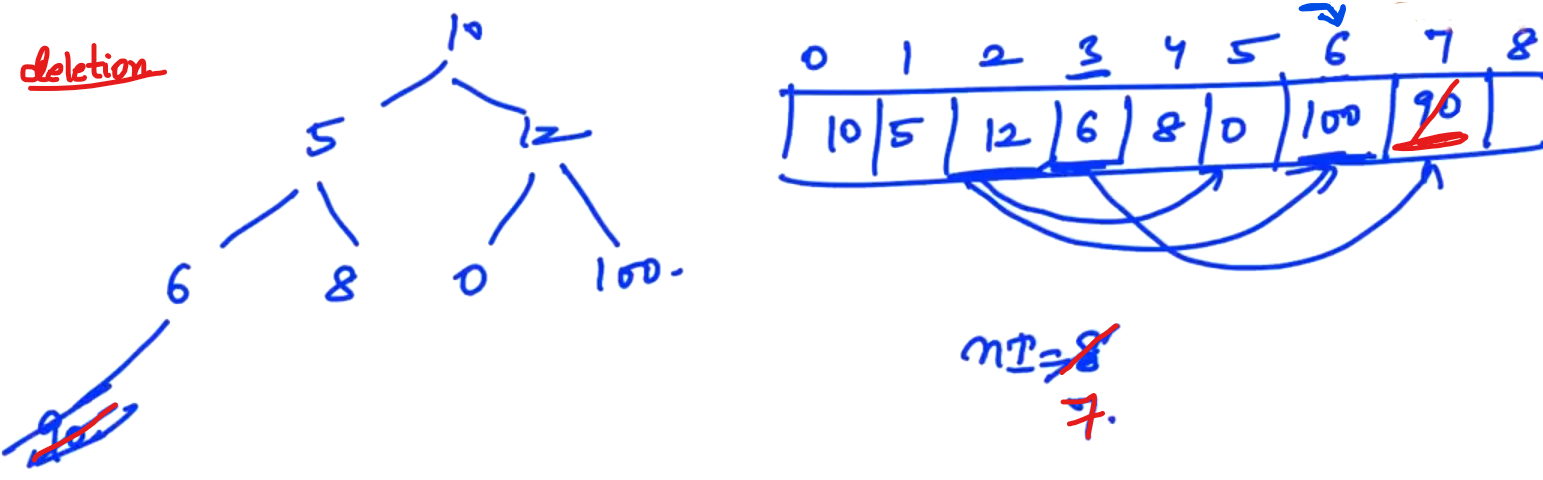 deletion
10
5 12
6 8 0 100.
90
0 1 2 3 4 5 6 7 8
10 5 12 6 8 0 100 90
nI=8
7.